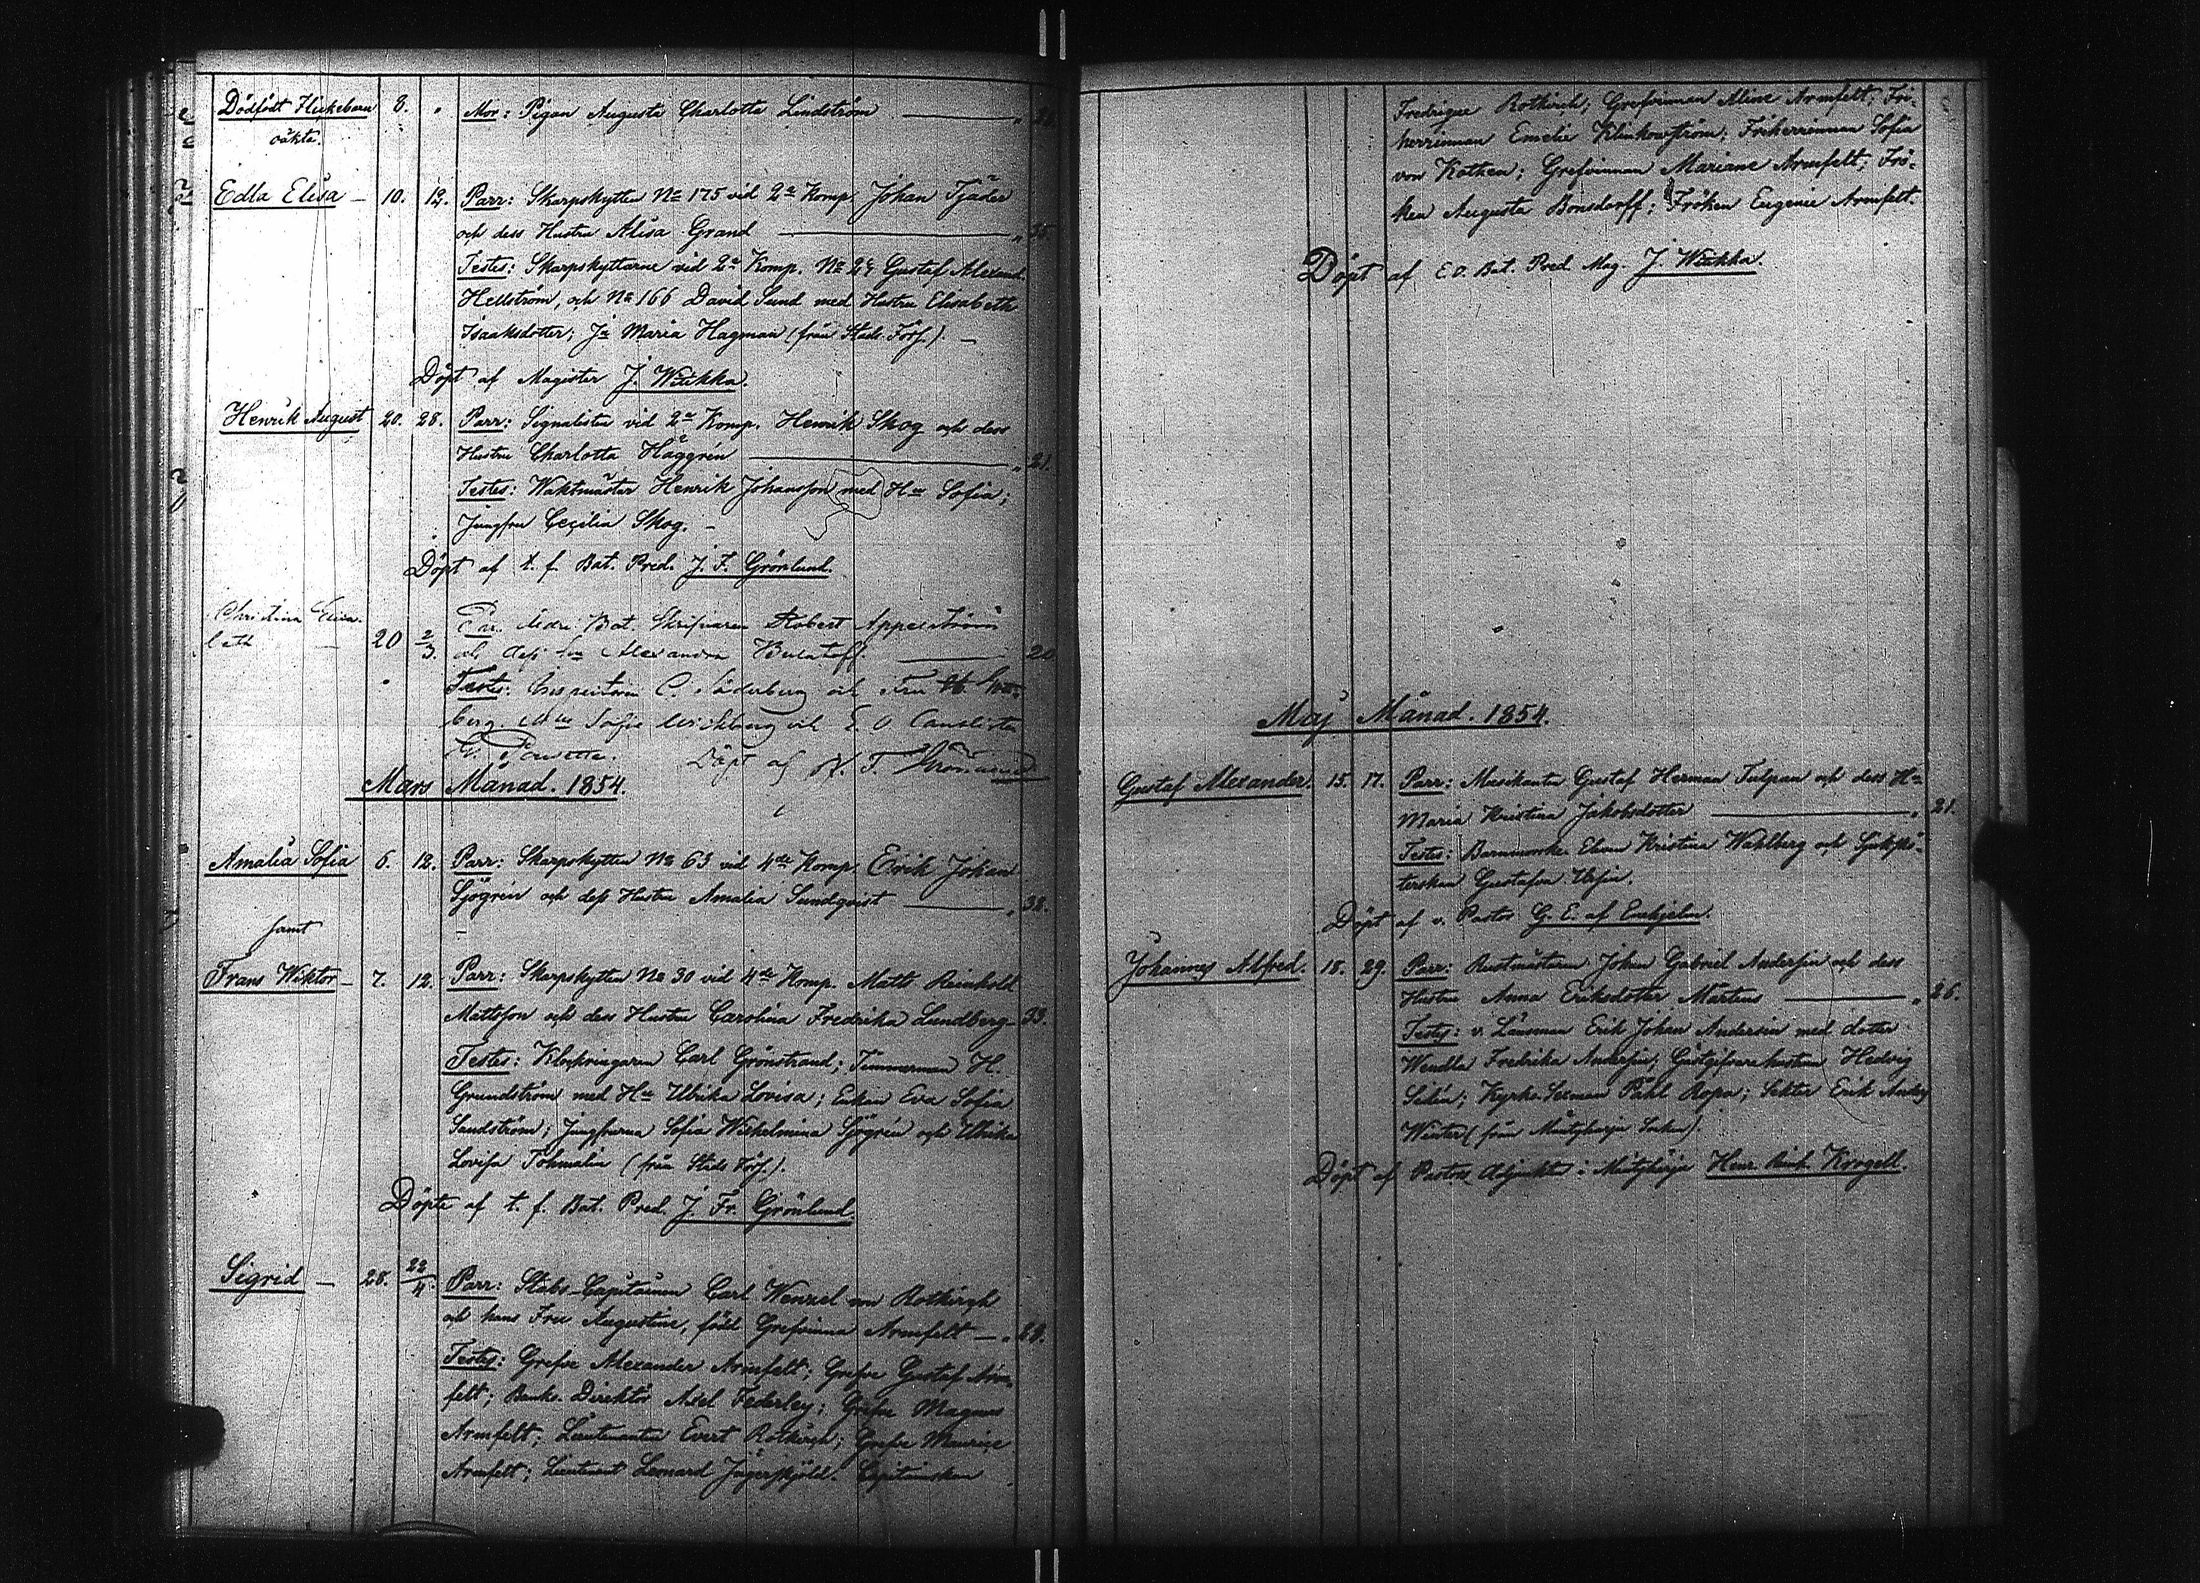 Dödfödt Flickebarn 8. " Mor: Pigan Augusta Charlotta Lindström
oäkta.
Edla Elisa – 10. 12. Parr: Skarpskytten No 175 vid 2a Komp. Johan Tjäder
och dess Hustru Alisa Grand " 35.
Testes: Skarpskyttarne vid 2a Komp. No 24 Gustaf Alexand.
Hellström, och No 166 David Sund med Hustru Elisabeth
Isaaksdotter; Ja Maria Hagman (från Stads Förs.). –
Döpt af Magister J. Wiukka.
Henrik August 20. 28. Parr: Signalisten vid 2a Komp. Henrik Skog och dess
Hustru Charlotta Häggrén " 21.
Testes: Waktmästar Henrik Johansson med Hu Sofia;
Jungfru Cecilia Skog. –
Döpt af t. f. Bat. Pred. J. F. Grönlund.
Christina Elisa-
beth – 20 2/3. Par. Bat. Skrifvaren Robert Appelström
och deß Alexandra 20
Testes: C. Söderberg och Fru
berg. Sofie och E. O. Canslisten
Döpt af
Mars Månad. 1854.
Amalia Sofia 6. 12. Parr: Skarpskytten No 63 vid 4de Komp Erik Johan
Sjögrén och deß Hustru Amalia Sundqvist " 32.
samt
Frans Wiktor – 7. 12. Parr: Skarpskytten No 30 vid 4de Komp. Matts Reinhold
Mattsson och dess Hustru Carolina Fredrika Lundberg – 33.
Testes: Klockringaren Carl Grönstrand; Timmerman H.
Grundström med Hu Ulrika Lovisa; Enkan Eva Sofia
Sandström; Jungfrurna Sofia Wilhelmina Sjögrén och Ulrika
Lovisa (från Stads Förs.).
Döpte af t. f. Bat. Pred. J. Fr. Grönlund.
Sigrid – 28. 22/4. Parr: Stabs-Capitainen Carl Wenzel von Rotkirch
och hans Fru Augustine, född Grefvinna Armfelt – "
Testes: Grefve Alexander Armfelt; Grefve Gustaf Arm-
felt; Banko-Direktör Axel Federley; Grefve Magnus
Armfelt; Lieutenanten Evert Rotkirch; Grefve Maurice
Armfelt; Lieutenant Leonard Jägerskjöld. Capitainskan
Fredrigue Rotkirch; Grefvinnan Aline Armfelt; Fri-
herrinnan Emelie Klinkowström; Friherrinnan Sofia
von Kothen; Grefvinnan Mariane Armfelt; Frö-
ken Augusta Bonsdorff; Fröken Eugenie Armfelt.
Döpt af E. O. Bat. Pred. Mag. J. Wiukka.
Maj Månad. 1854.
Gustaf Alexander. 15. 17. Parr: Musikanten Gustaf Herman Tulpan och dess Hu
Maria Kristina Jakobsdotter " 21.
Testes: Barnmorske Kristina Wahlberg och
Gustafva
Döpt af v. Pastor G. E. af Enehjelm.
Johannes Alfred. 18. 29. Parr: Rustmästaren Johan Gabriel Andersin och dess
Hustru Anna Eriksdotter Martens " 26.
Testes: v. Länsman Erik Johan Andersin med dotter
Wendla Fredrika Andersin; Gästgifvarehustrun Hedvig
Selén; Kyrko-Sexman Påhl Ropa;
Winter (från Mäntyharju Socken).
Döpt af Pastors Adjunkten i Mäntyharju Henr. Rich. Krogell.